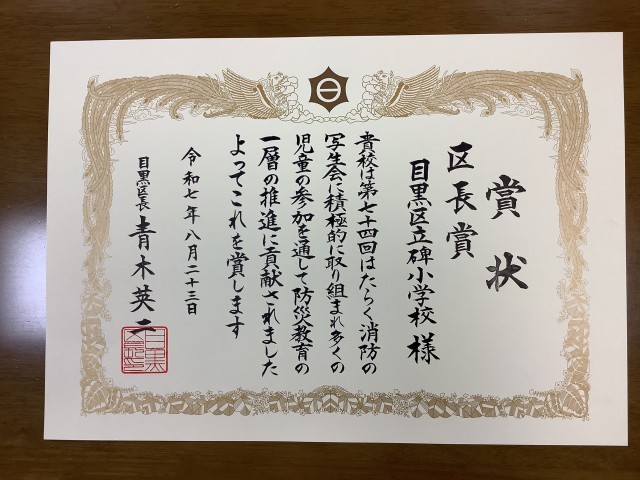 賞状
区長賞
目黒区立碑小学校様
貴校は第七十四回はたらく消防の
写生会に積極的に取り組まれ多くの
児童の参加を通して防災教育の
一層の推進に貢献されました
よってこれを賞します
令和七年八月二十三日
目黒区長 青木英二